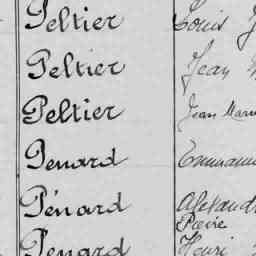 Peltier Louis
Peltier Jean
Peltier Jean Marie
Penard Emmanuel
Pénard Alexandre
Pierre
Pénard Henri